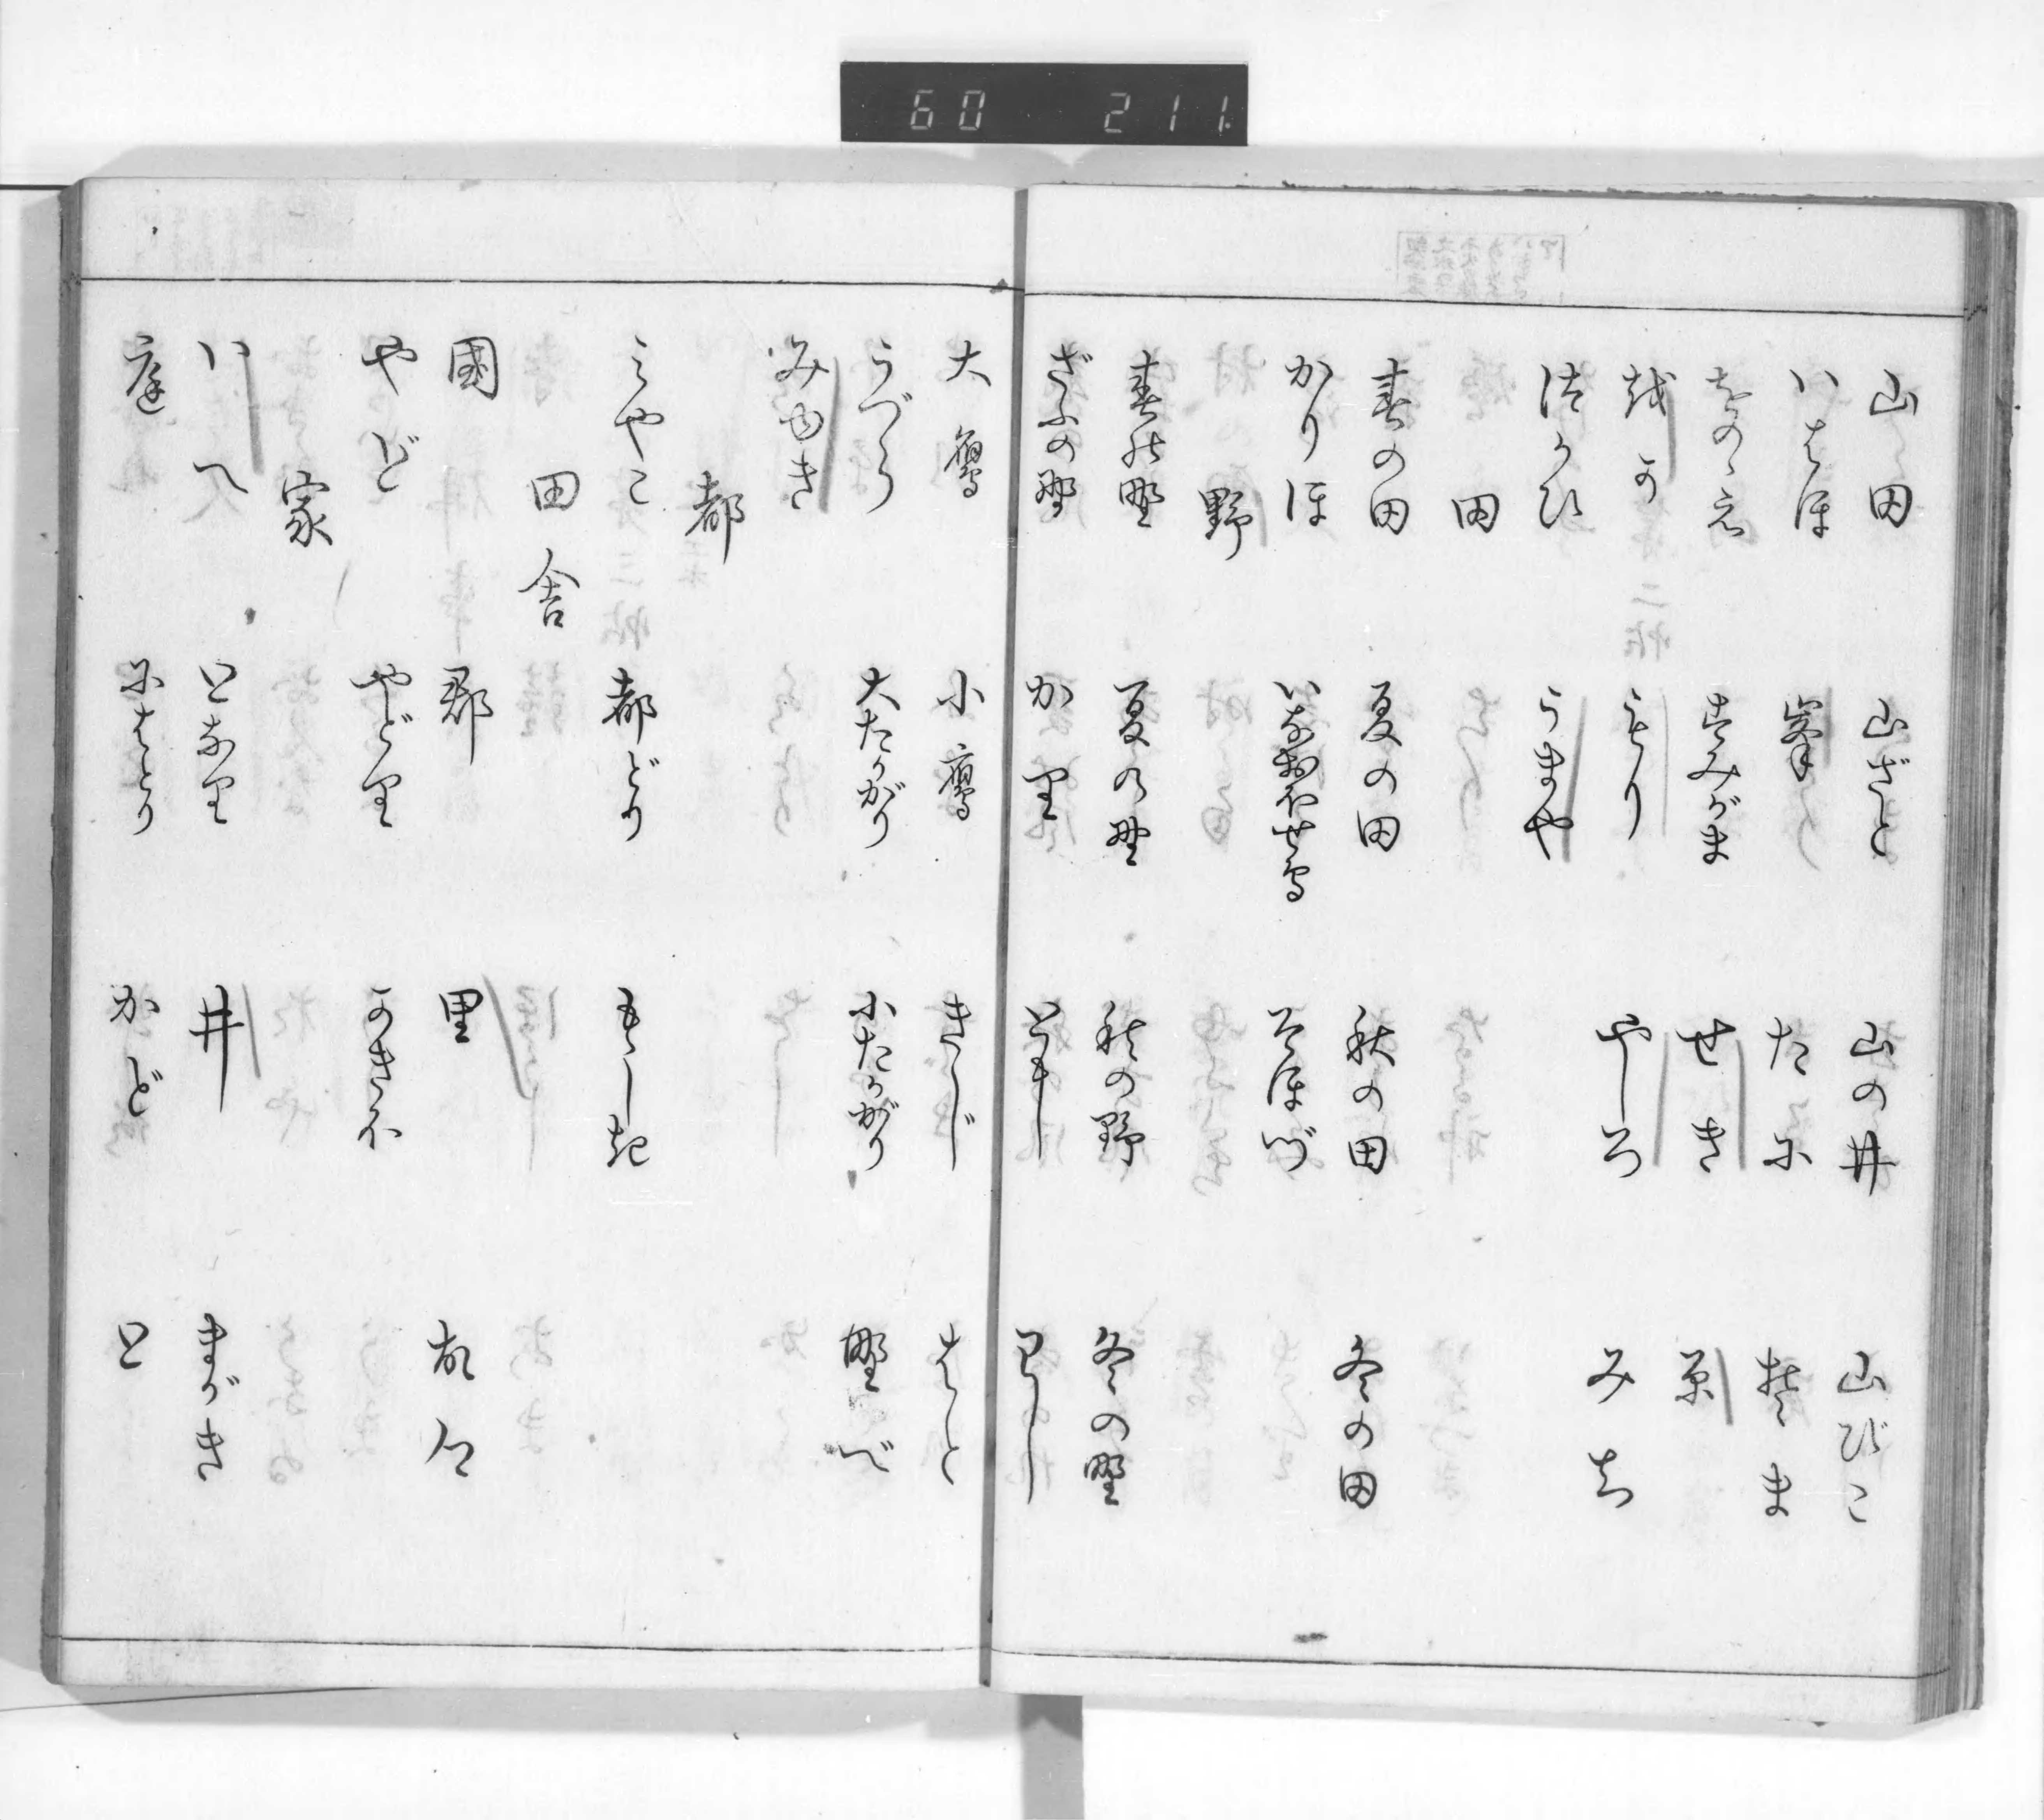 60 211
山田 山ざと 山の井 山びこ
いはほ 峯 たに そま
をのゝえ すみがま せき 原
越か もり やしろ みち
使かひ うまや
田
春の田 夏の田 秋の田 冬の田
かりほ いなおほせ鳥 そほづ
野
春の野 夏の野 秋の野 冬の野
ざふの野 かり ともし わし
大鷹 小鷹 きじ はと
うづら 大たかがり 小たかがり 野べ
みゆき
都
みやこ 都どり もゝしき
田舎
國 郡 里 故郷
やど やどり かきほ
家
いへ となり 井 まがき
庭 にはとり かど と